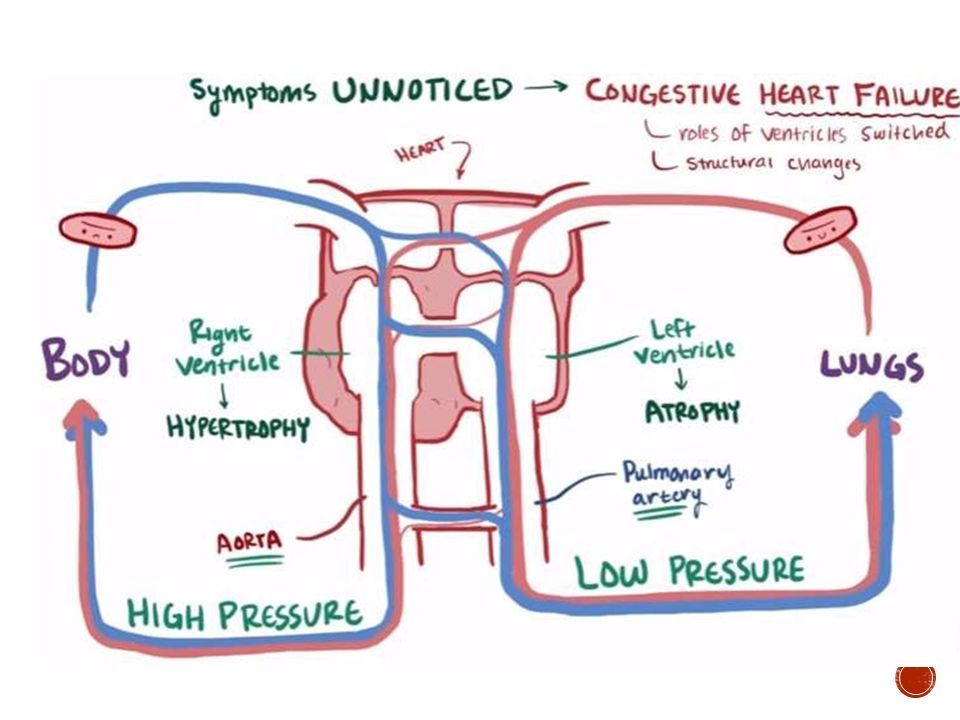 Symptoms UNNOTICED → CONGESTIVE HEART FAILURE
roles of ventricles switched
structural changes
HEART
Right
ventricle
↓
HYPERTROPHY
Left
ventricle
↓
ATROPHY
BODY
LUNGS
Pulmonary
artery
AORTA
LOW PRESSURE
HIGH PRESSURE